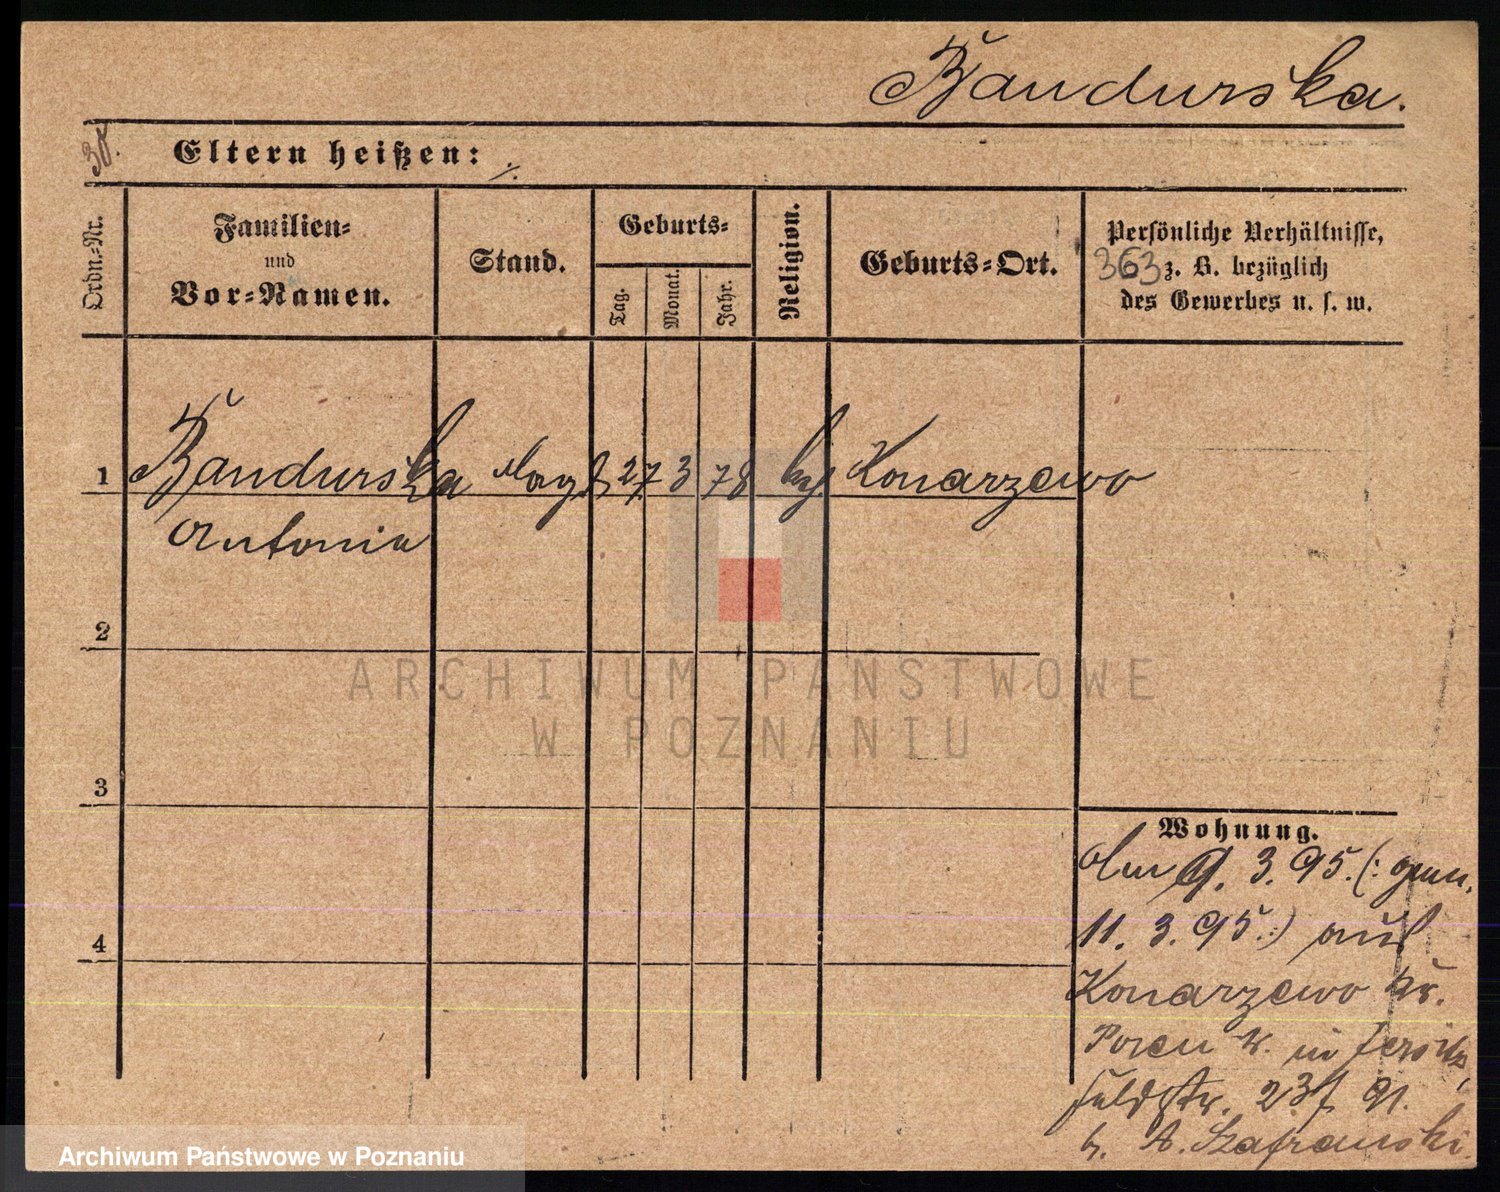 Bandurska.
38.
Eltern heißen: ./.
Ordn.-Nr.
Familien-
und
Vor-Namen.
Stand.
Geburts-
Tag.
Monat.
Jahr.
Religion.
Geburts-Ort.
Persönliche Verhältnisse,
363 z. B. bezüglich
des Gewerbes u. s. w.
1 Bandurska Magd 27 3 78 kg Konarzewo
Antonia
2
3
4
Wohnung.
Am 9. 3. 95. (: gem.
11. 3. 95. :) aus
Konarzewo Kr.
Posen W. in Jersitz,
Feldstr. 23
b. A. Szafranski
ARCHIWUM PAŃSTWOWE
W POZNANIU
Archiwum Państwowe w Poznaniu